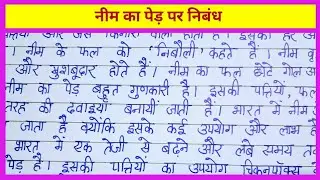 नीम का पेड़ पर निबंध
किनारा वाला होता है। इसका हर
। नीम के फल को 'निबौली' कहते हैं। नीम
और खुशबूदार होते हैं। नीम का फल छोटे गोल
नीम का पेड़ बहुत गुणकारी है। इसकी पत्तियाँ, फल
तरह की दवाइयाँ बनायीं जाती हैं। भारत में नीम
जाता है क्योंकि इसके कई उपयोग और लाभ हैं
भारत में एक तेजी से बढ़ने और लंबे समय तक
पेड़ है। इसकी पत्तियों का उपयोग चिकनपॉक्स